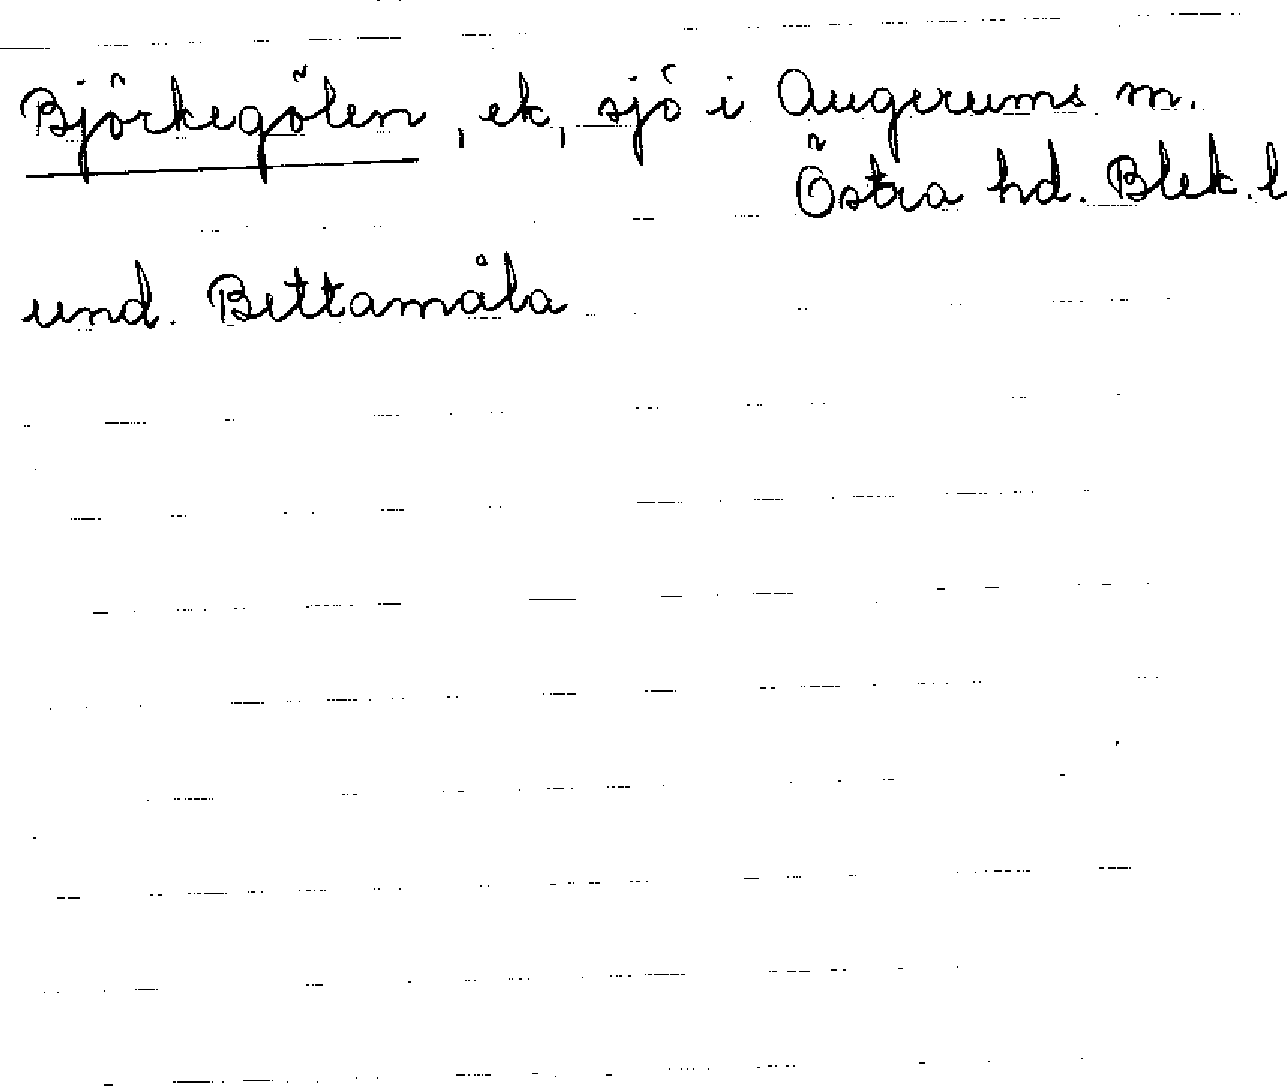 Björkegölen, ek, sjö i Augerums m.
Östra hd. Blek. l
und. Bettamåla